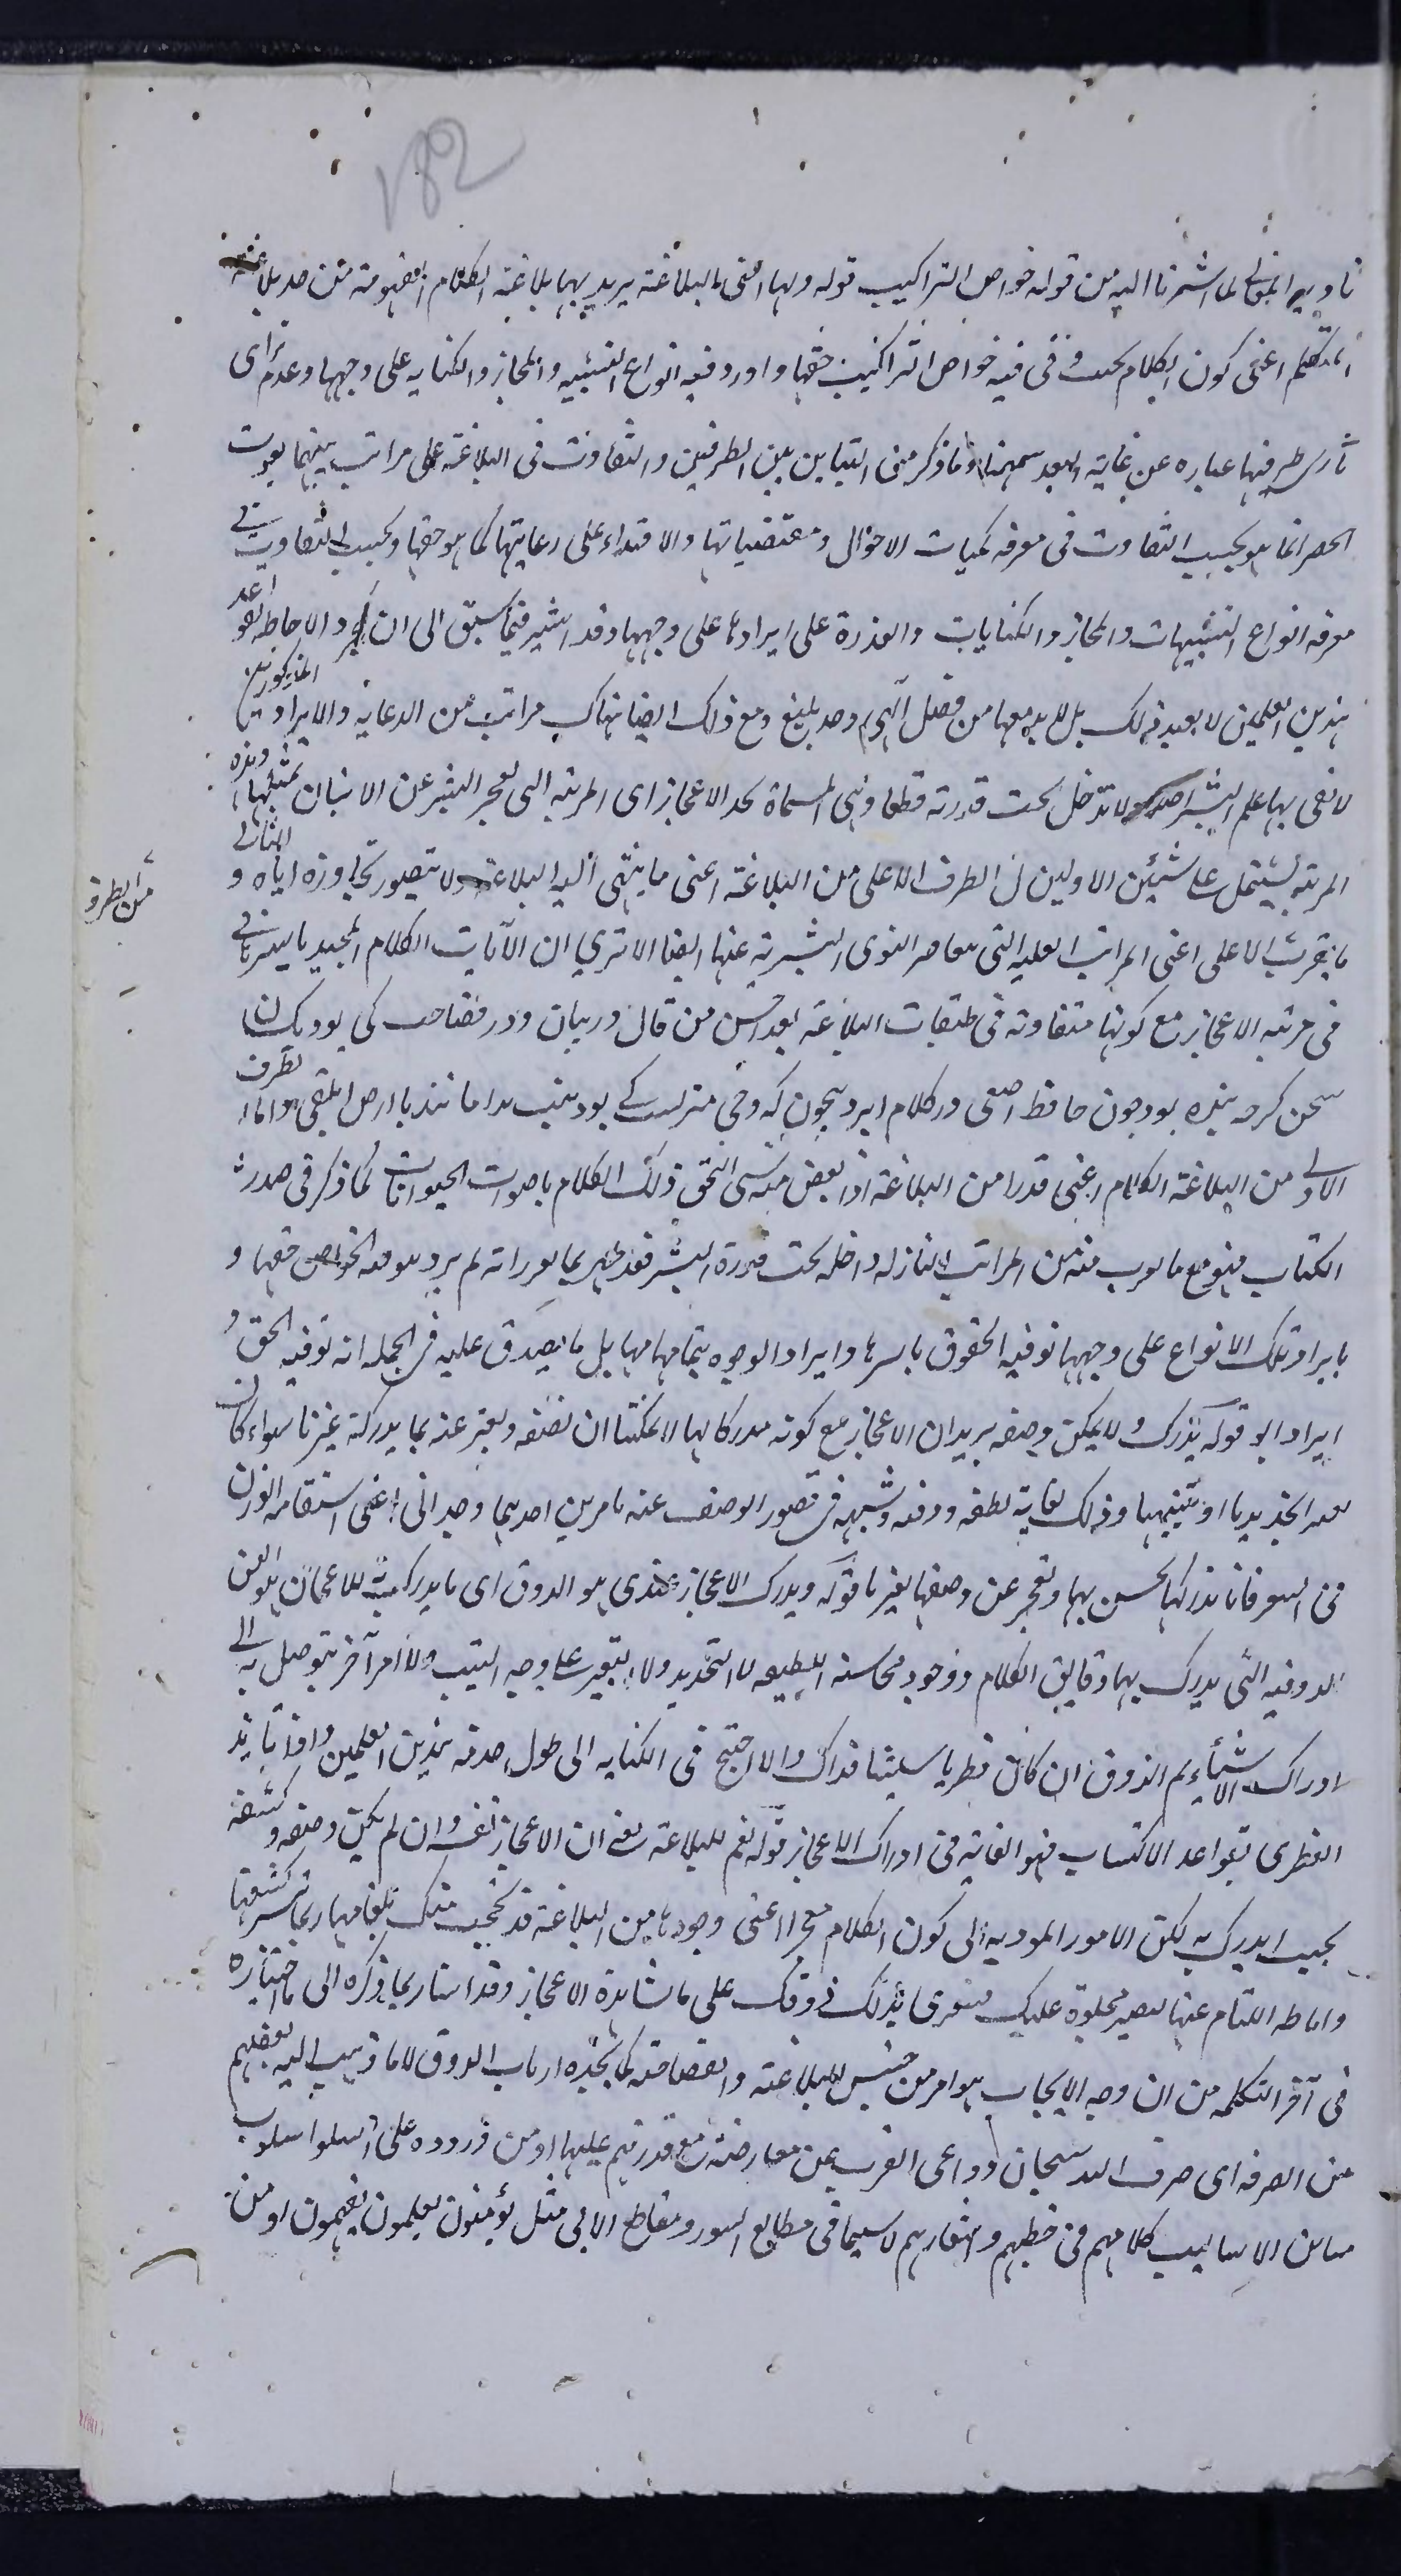 182
تأدية المعانى لما اشرنا اليه من قوله خواص التراكيب قوله ولها اعنى بالبلاغة يريد بها بلاغة الكلام المفهومة من حد بلاغة
المتكلم اعنى كون الكلام بحيث وفى فيه خواص التراكيب حقها واورد فيه انواع التشبيه والمجاز والكناية على وجهها وعدم تراى
نارى طرفيها عباره عن غاية البعد بينهما وما ذكر من التباين بين الطرفين والتفاوت فى البلاغة على مراتب بينهما يفوت
الحصر انما هو بحسب التفاوت فى معرفة كميات الاحوال ومقتضياتها والاقتدار على رعايتها كما هو حقها وبحسب التفاوت فى
معرفة انواع التشبيهات والمجاز والكنايات والقدرة على ايرادها على وجهها وقد اشير فيما سبق الى ان والاحاطة بقواعد
هذين العلمين لا يفيد ذلك بل لا بد معها من فضل آلهى وجد بليغ ومع ذلك ايضا هناك مراتب من الرعاية والايراد المذكورين
لا يفى بها علم البشر اصلا ولا تدخل تحت قدرته قطعا وهى المسماة بحد الاعجاز اى المرتبة التى تعجز البشر عن الاتيان بمثلها وهذه
المرتبة تشتمل على شيئين الاولين ان الطرف الاعلى من البلاغة اعنى ما ينتهى اليه البلاغة ولا يتصور تجاوزه اياه و الثانى
من الطرف
ما يقرب الاعلى اعنى المراتب العلية التى القوى البشرية عنها ايضا الا ترى ان الآيات الكلام المجيد باسرها
فى مرتبة الاعجاز مع كونها متفاوتة فى طبقات البلاغة احسن من قال در بيان ودر فصاحت كى بود يكسان
سخن كرچه بود چون حافظ اصمعى در كلام ايزد بيچون كه وحى منزلست كى بود تبت يدا مانند يا ارض ابلعى واما الطرف
الاولى من البلاغة الكلام اعنى قدرا من البلاغة اذا نقص منه شى التحق ذلك الكلام باصوات الحيوانات كما ذكر فى صدر
الكتاب فهو مع ما يقرب منه من المراتب النازلة داخلة تحت قدرة البشر فقد ظهر بما قرر انه لم يرد بتوفية الخواص حقها و
بايراد تلك الانواع على وجهها توفية الحقوق باسرها وايراد الوجوه بتمامها بل ما يصدق عليه فى الجملة انه توفية الحق و
ايراد الوجه قوله يدرك ولا يمكن وصفه يريد ان الاعجاز مع كونه مدركا لها لا يمكننا ان نصفه ونعبر عنه بما يدركه غيرنا سواء كان
وذلك لغاية لطفه ودقته وشبهه فى تصور الوصف عنه بامرين احدهما وجدانى اعنى استقامة الوزن
فى الشعر فانا ندركها بحسن بها ونعجز عن وصفها لغيرنا قوله ومدرك الاعجاز عندى هو الذوق اى ما يدرك به الاعجاز هو القوة
الذوقية التى يدرك بها دقايق الكلام ووجوه محاسنه اللطيفة لا التحديد ولا التعبير على وجه ولا امر آخر يتوصل به الى
ادراك الاشياء ثم الذوق ان كان فطريا سليقيا فذاك والا احتيج فى اكتسابه الى طول خدمة هذين العلمين واذا تأيد
الفطرى بقواعد الاكتساب فهو الغاية فى ادراك الاعجاز قوله نعم للبلاغة يعنى ان الاعجاز نفسه وان لم يمكن وصفه وكشفه
بحيث يدرك به لكن الامور المودية الى كون الكلام معجزا اعنى وجوها من البلاغة قد تحجبت عنك بلثامها ربما تيسر كشفها
واماطة اللثام عنها لتصير مجلوة عليك ذوقك على مشاهدة الاعجاز وقد اشار بما ذكره الى ما اختاره
فى آخر التكملة من ان وجه الاعجاز هو امر من جنس البلاغة والفصاحة كما يجده ارباب الذوق لا ما ذهب اليه بعضهم
من الصرفة اى صرف الله سبحان دواعى العرب عن معارضته مع قدرتهم عليها او من وروده على اسلوب
مباين لاساليب كلامهم فى خطبهم واشعارهم لا سيما فى مطالع السور ومقاطع الآى مثل يؤمنون يعلمون يفهمون او من